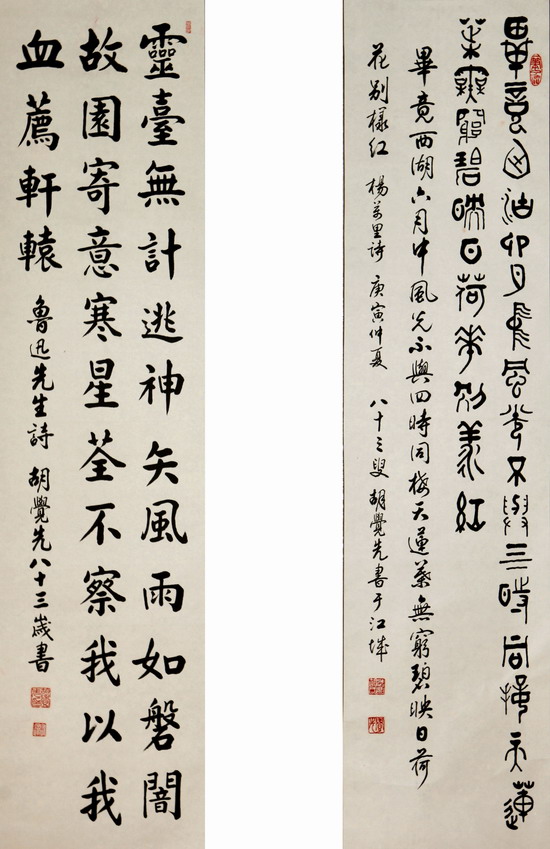 畢竟西湖六月中風光不與四時同接天蓮
葉無窮碧映日荷花別樣紅
畢竟西湖六月中風光不與四時同接天蓮葉無窮碧映日荷
花别樣红 楊萬里詩 庚寅仲夏 八十三叟 胡覺先書于江城
靈臺無計逃神矢風雨如磐闇
故園寄意寒星荃不察我以我
血薦軒轅 魯迅先生詩 胡覺先八十三歲書